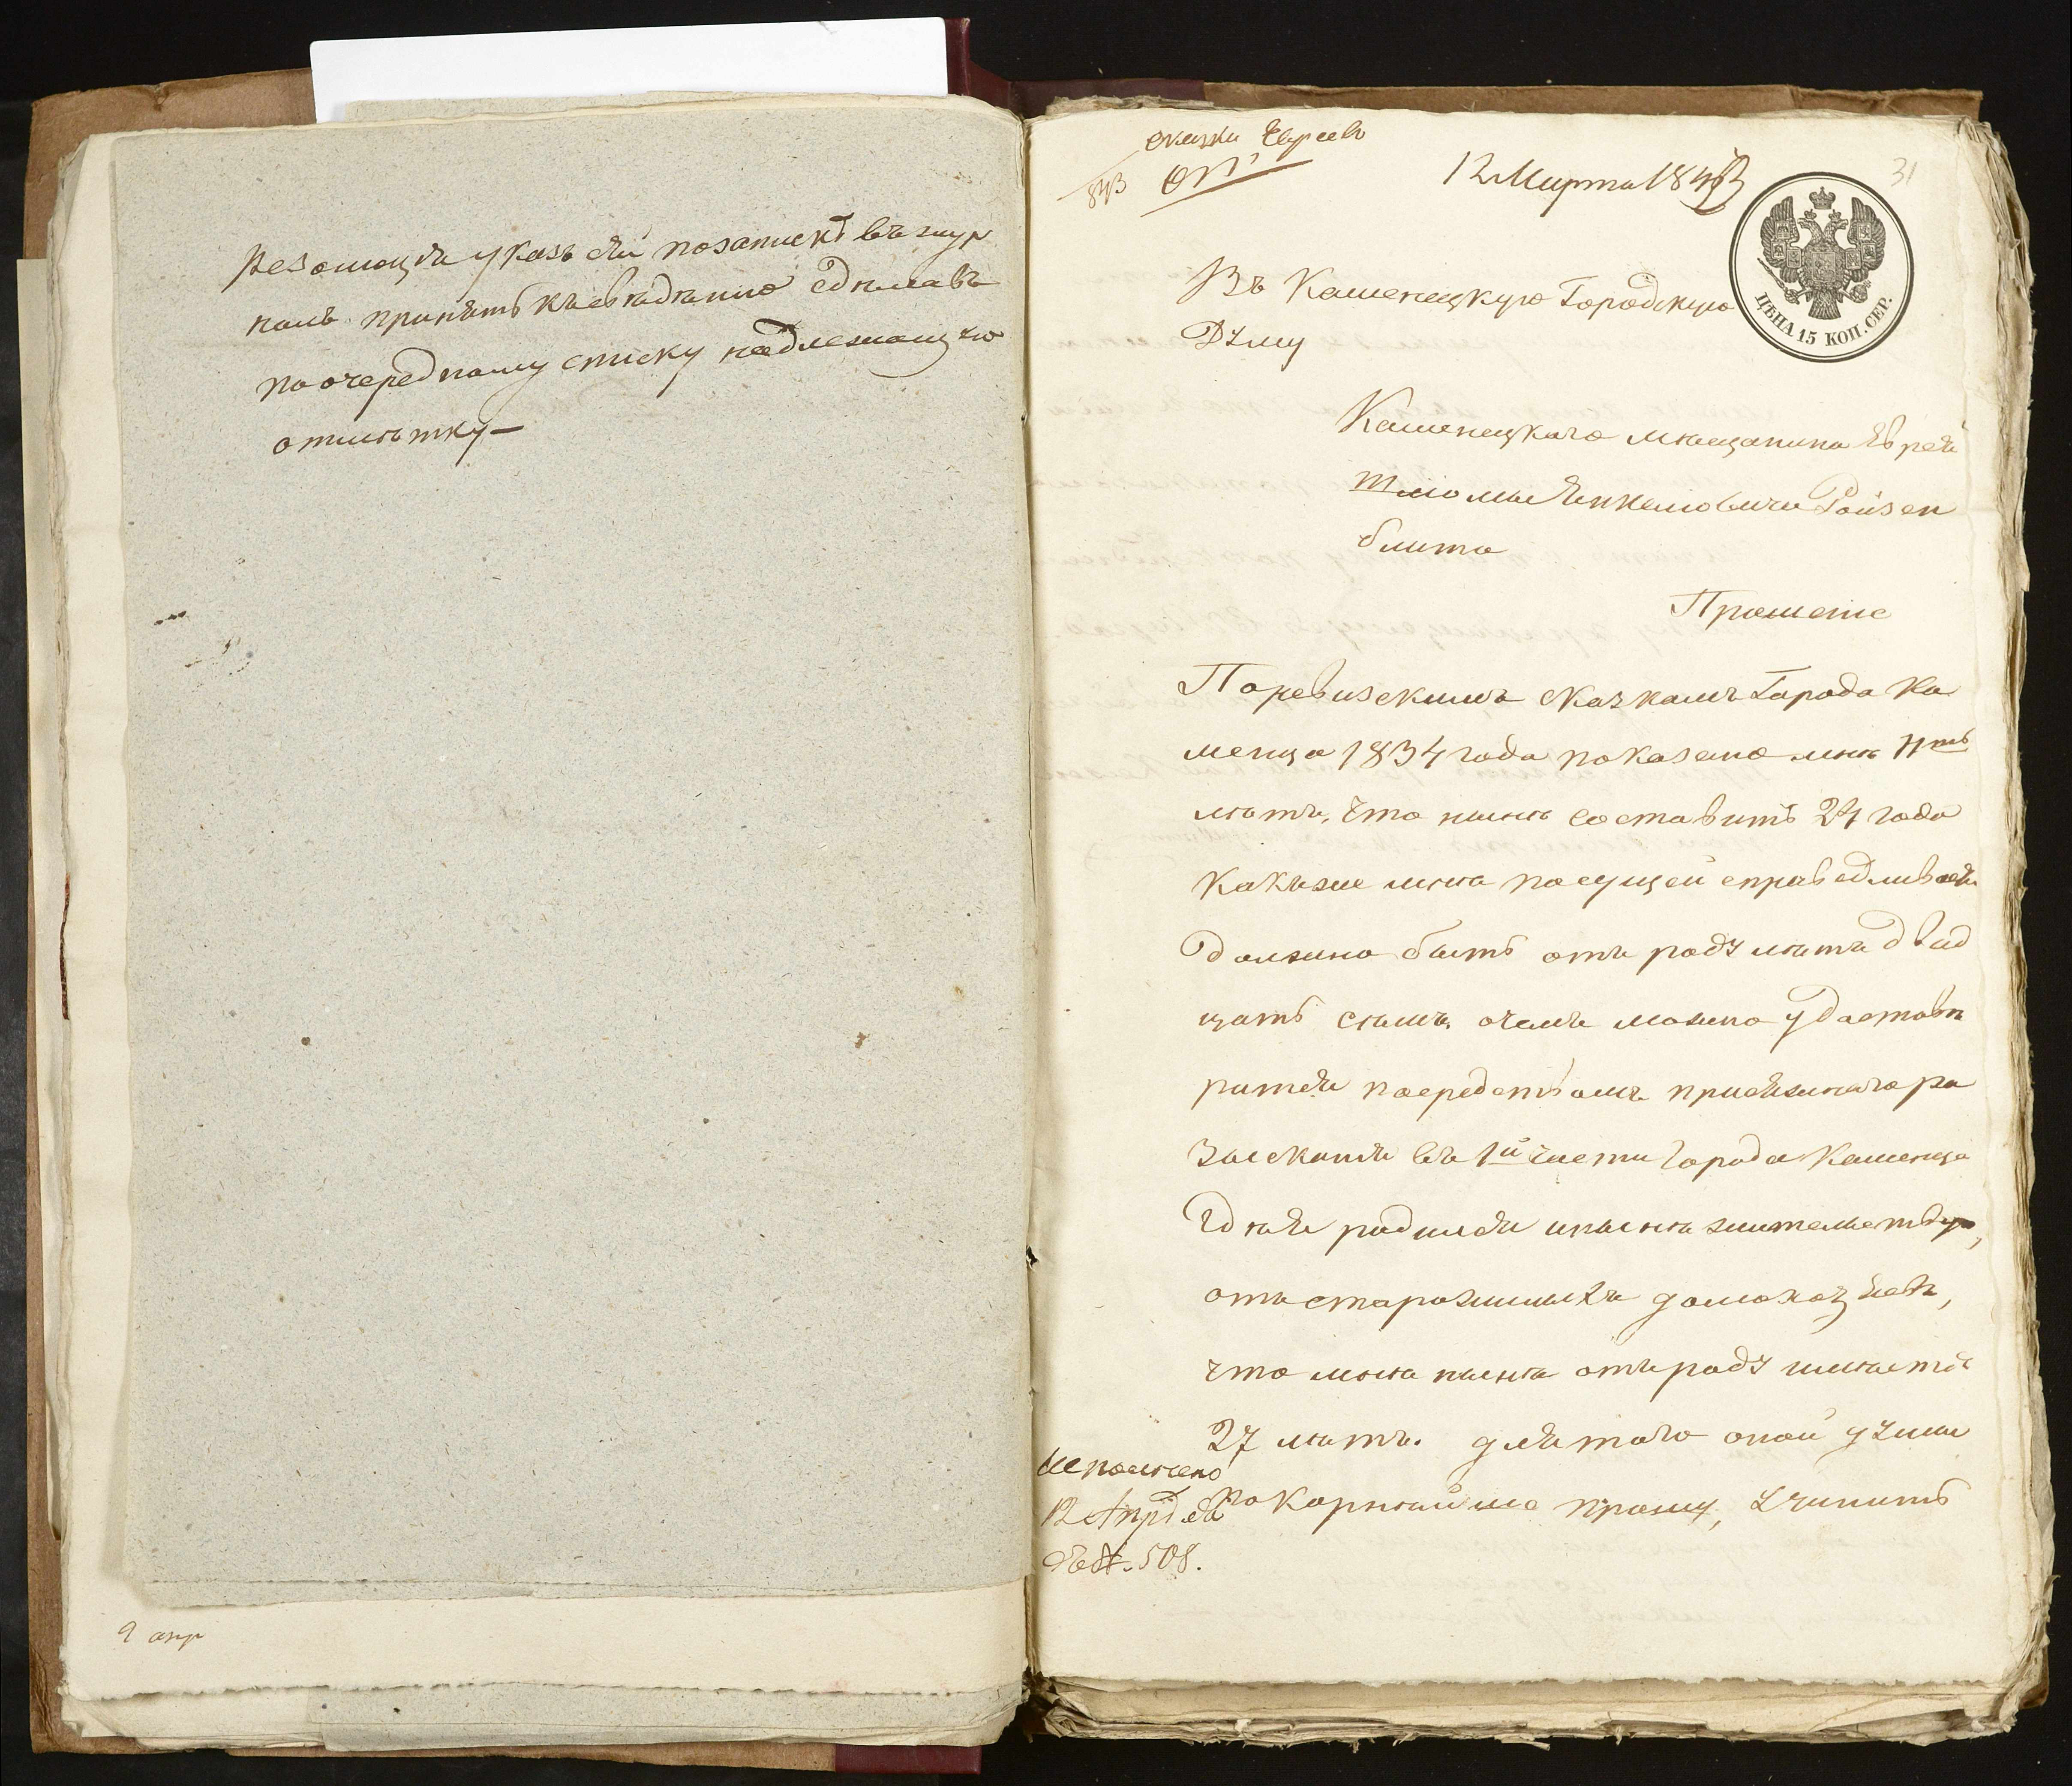 Резолюція указъ сей позапискѣ въ жур
налъ принять къ свѣдѣнію сдѣлавъ
по очередному списку надлежащую
отмѣтку —
9 апр
сказки Евреевъ
843
12 Марта 1843
31
ЦѢНА 15 КОП. СЕР.
Въ Каменецкую Городскую
Думу
Каменецкаго мѣщанина Еврея
Шліомы Янкелiовича Ройзен
блита
Прошеніе
По ревизскимъ сказкамъ Города Ка
менца 1834 года показано мнѣ
лѣтъ, что нынѣ составитъ 24 года
какъ же мнѣ по сущей справедливости
должно быть отъ роду лѣтъ двад
цать семь, о чемъ можно удостовѣ
рится посредствомъ присяжнаго ро
зысканія въ 1й части Города Каменца
гдѣ я родился и нынѣ жительствую,
отъ старожилыхъ домохозяевъ,
что мнѣ нынѣ отъ роду имѣется
27 лѣтъ. для того оной думы
покорнѣйше прошу, учинить
Исполнено
12 Апрѣля
за № 508.